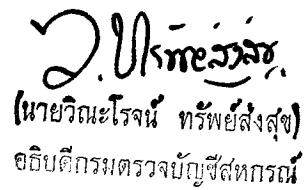 ว. ทรัพย์ส่งสุข
(นายวิณะโรจน์ ทรัพย์ส่งสุข)
อธิบดีกรมตรวจบัญชีสหกรณ์